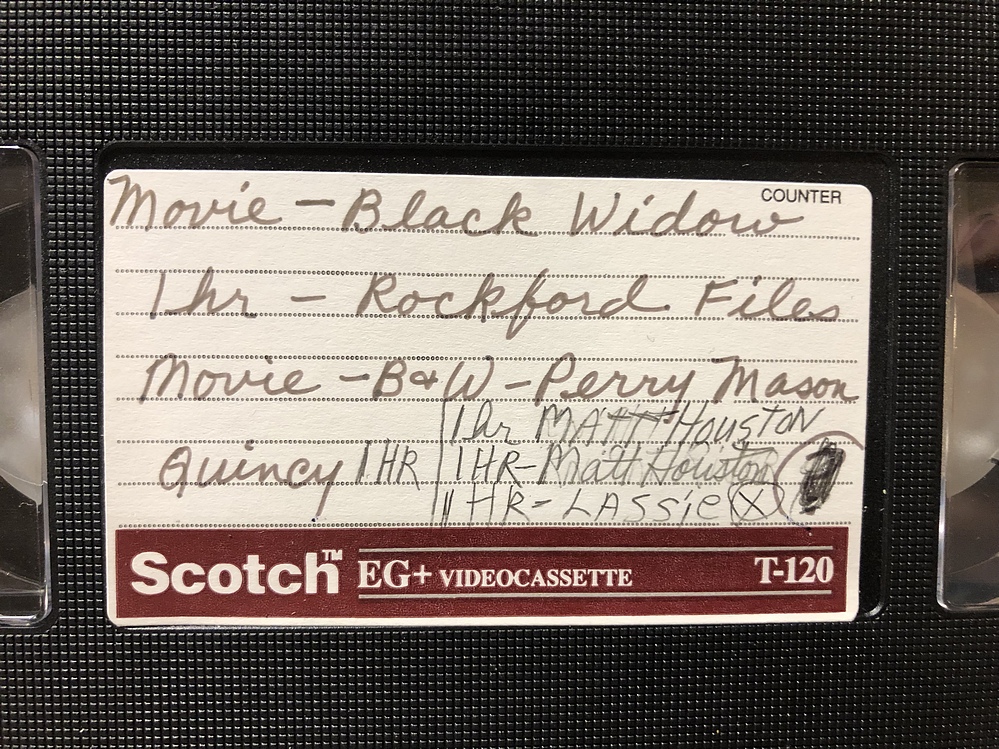 COUNTER
Movie - Black Widow
1hr - Rockford Files
Movie - B&W - Perry Mason
1hr MATT Houston
Quincy 1HR 1HR- Matt Houston
1 HR- LASSie X
Scotch™ EG+ VIDEOCASSETTE T-120